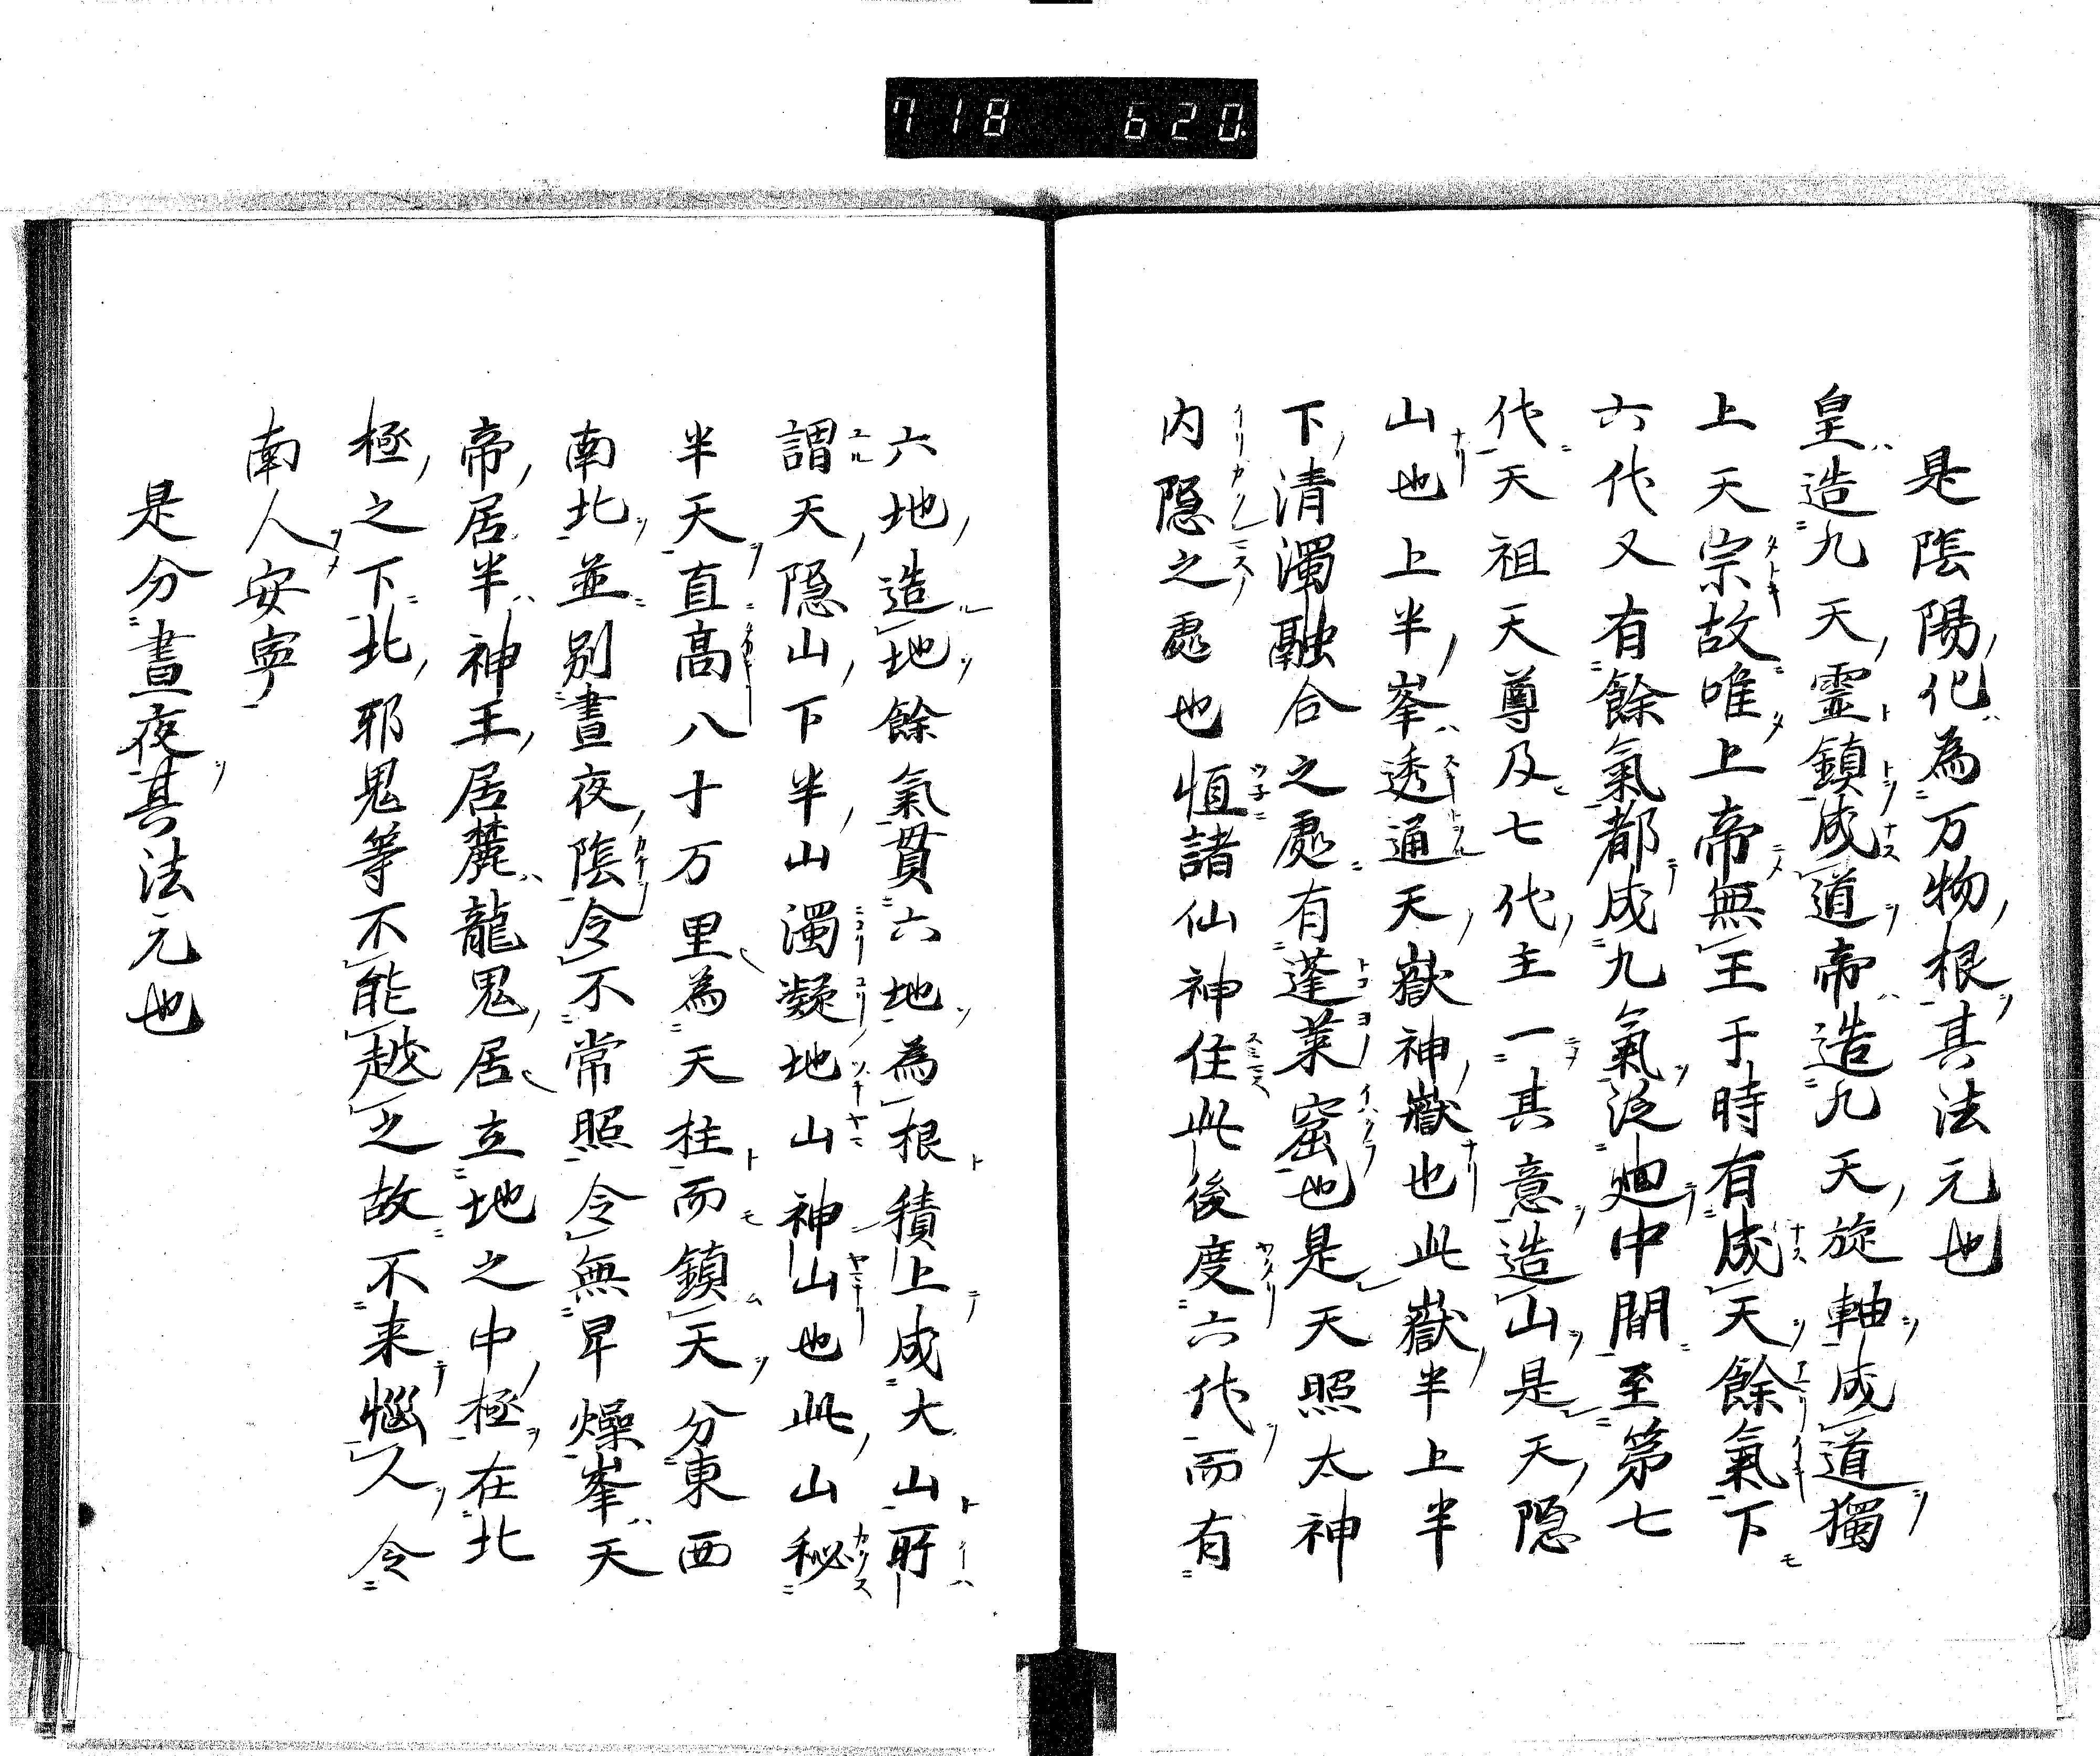 718 620
是陰陽化為万物根其法元也
皇造九天霊鎮成道帝造九天旋軸成道獨
上天宗故唯上帝無王于時有成天餘氣下
六代又有餘氣都成九氣泛廻中間至第七
代天祖天尊及七代主一其意造山是天隠
山也上半峯透通天嶽神嶽也此嶽半上半
下清濁融合之處有蓬莱窟也是天照太神
内隠之處也恒諸仙神住此後度六代而有
六地造地餘氣貫六地為根積上成大山所
謂天隠山下半山濁凝地山神山也此山秘
半天直高八十万里為天柱而鎮天分東西
南北並別晝夜陰令不常照令無旱燥峯天
帝居半神王居麓龍鬼居立地之中極在北
極之下北邪鬼等不能越之故不来惱人令
南人安寧
是分晝夜其法元也